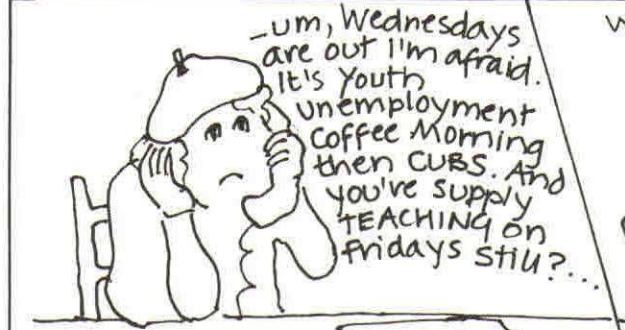 _um, Wednesdays
are out I'm afraid.
It's Youth
unemployment
Coffee Morning
then CUBS. And
you're supply
TEACHING on
Fridays still?...